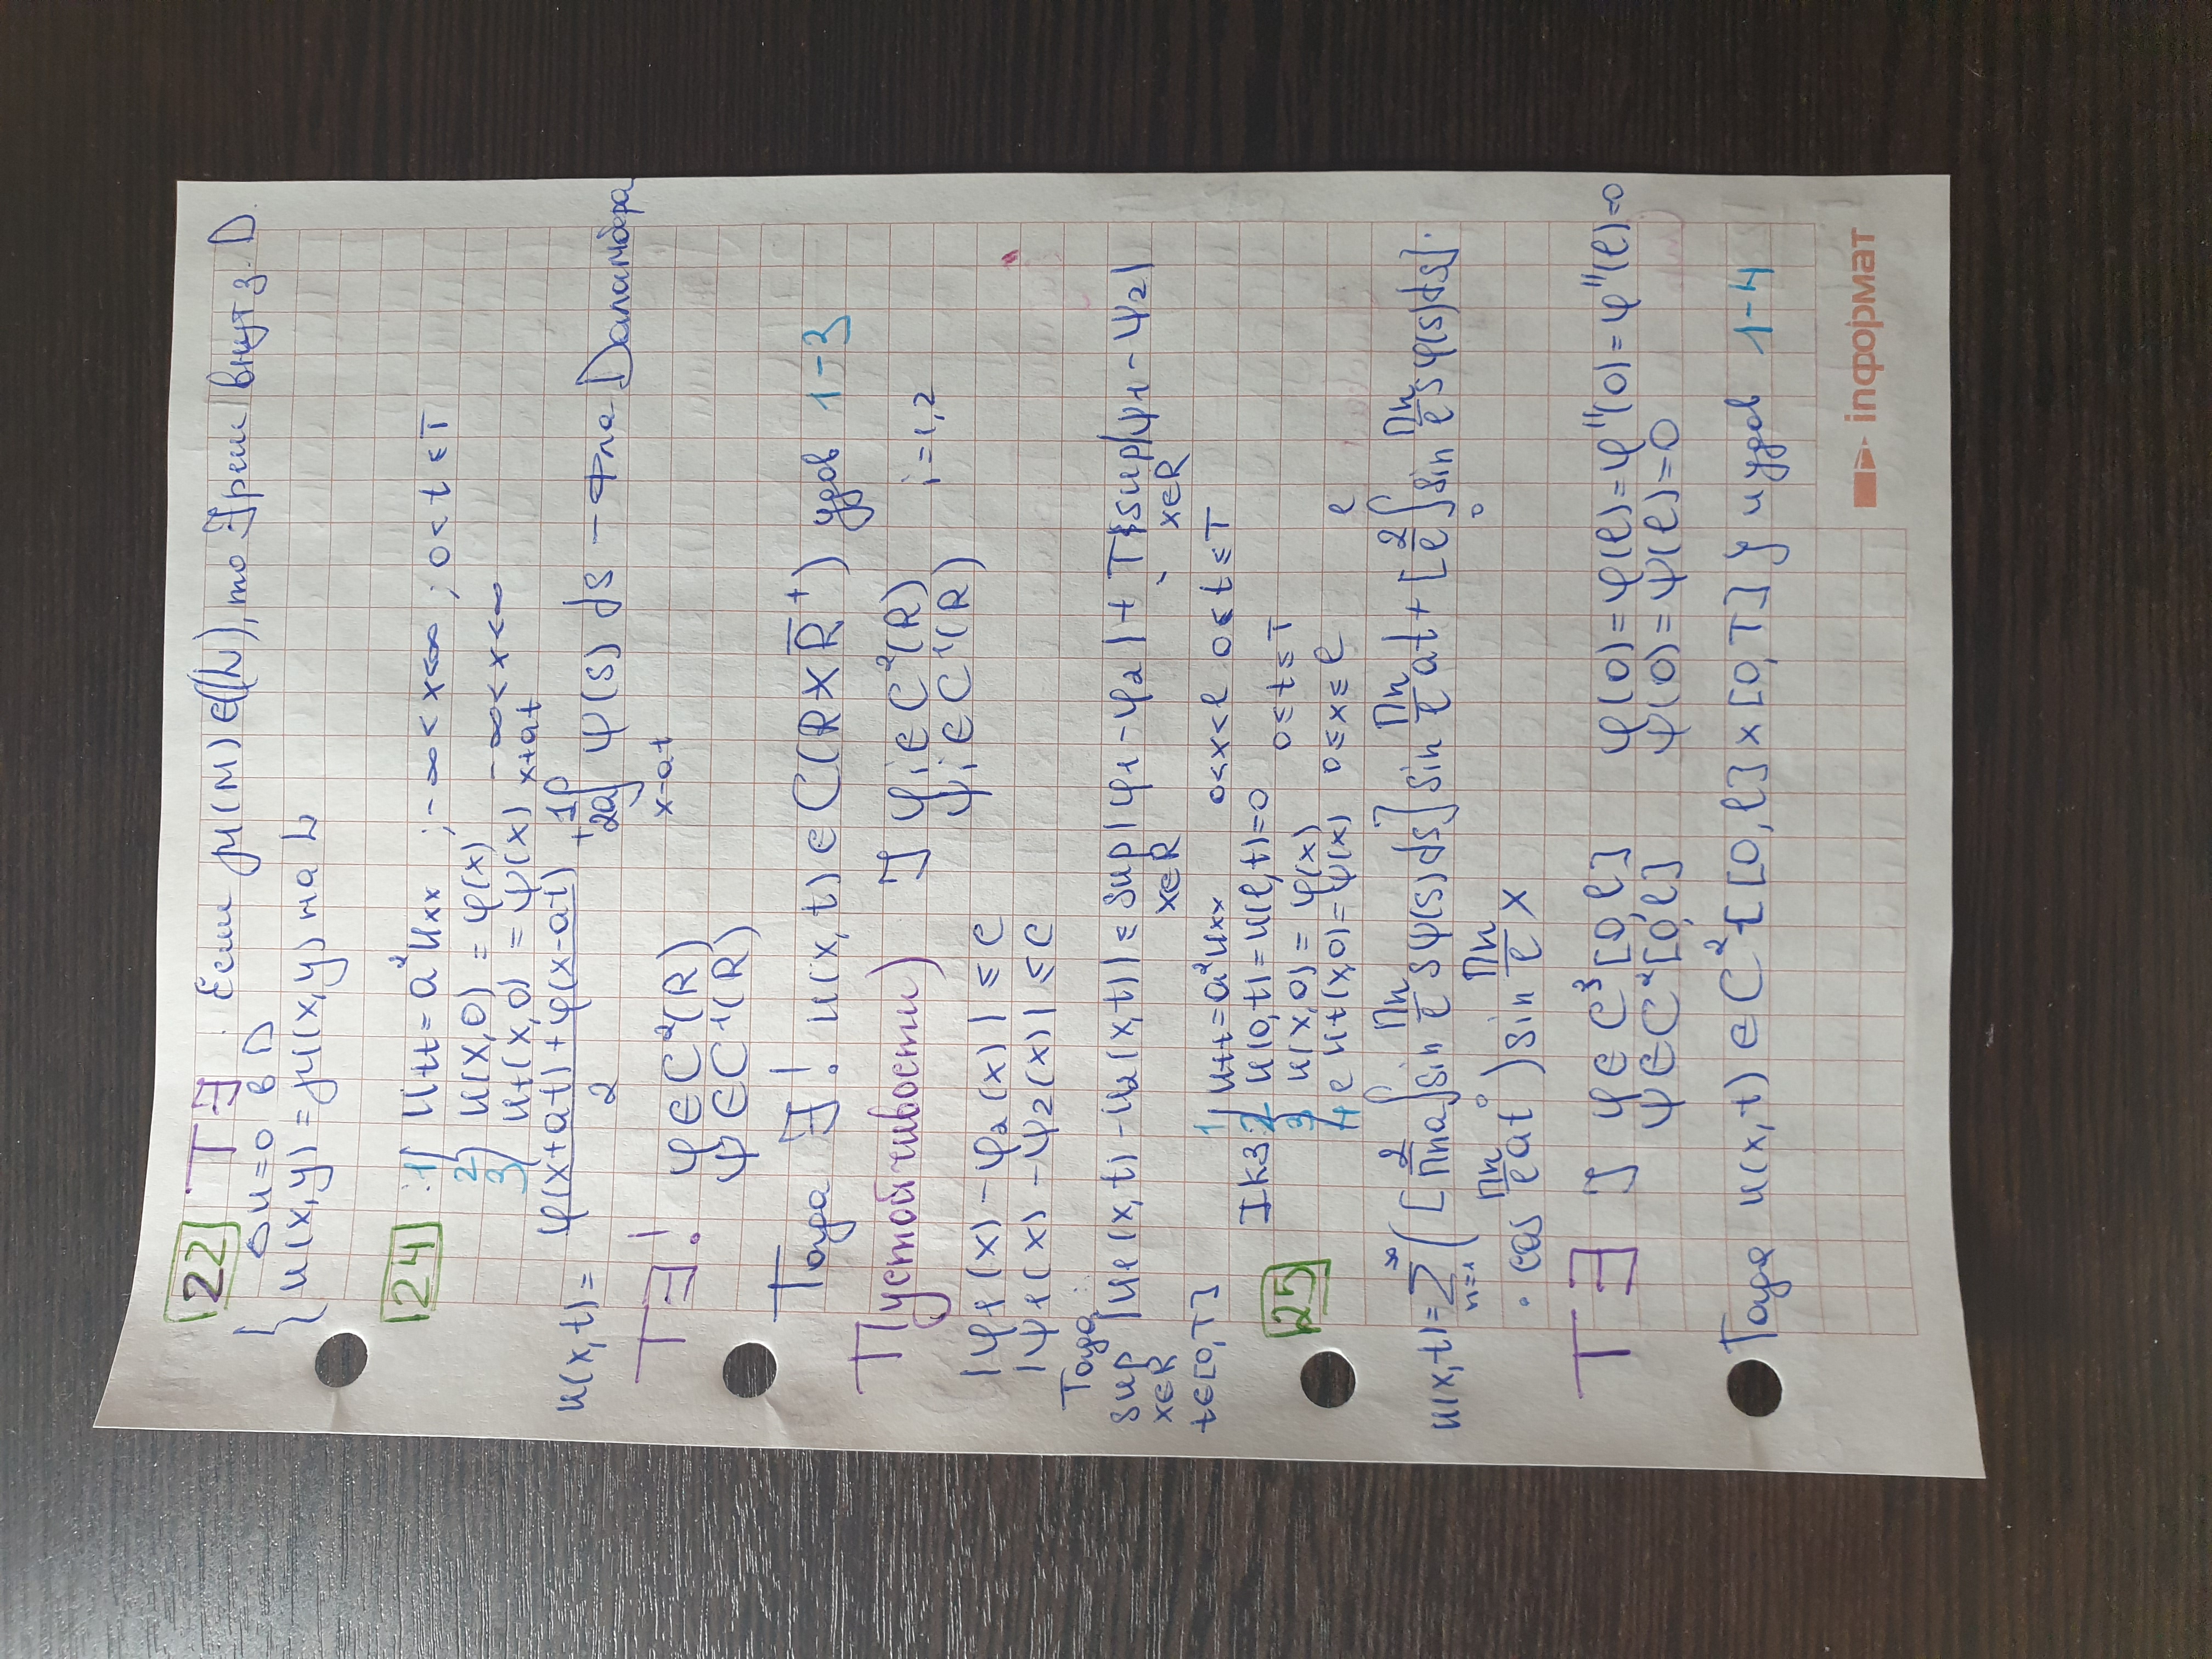 22 Т∃ . Если μ(м) ∈ C(L), то ∃ реш внут з. D
{ Δu=0 в D
u(x,y)=μ(x,y) на L
24 : 1) utt = a²uxx ; -∞<x<∞ ; 0<t≤T
2) u(x,0) = φ(x) ;
3) ut(x,0) = ψ(x) -∞<x<∞
u(x,t) = φ(x+at)+φ(x-at) / 2 + 1/2a ∫ x-at x+at ψ(s) ds - Ф-ла Даламбера
Т∃! φ∈C²(R)
ψ∈C¹(R)
Тогда ∃! u(x,t)∈C(R×R̅⁺) удов 1-3
Т(устойчивости) ] φi∈C²(R) i=1,2
ψi∈C¹(R)
|φ1(x)-φ2(x)|≤C
|ψ1(x)-ψ2(x)|≤C
Тогда:
sup |u1(x,t)-u2(x,t)|≤ sup |φ1-φ2| + T sup |ψ1-ψ2|
x∈R x∈R x∈R
t∈[0,T]
25 IкЗ 1) utt=a²uxx 0<x<l 0<t≤T
2) u(0,t)=u(l,t)=0 0≤t≤T
3) u(x,0)=φ(x)
4) ut(x,0)=ψ(x) 0≤x≤l
u(x,t)=∑ n=1 ∞ ([2/πna ∫ 0 l sin πn/l sψ(s)ds] sin πn/l at + [2/l ∫ 0 l sin πn/l sφ(s)ds] ·
· cos πn/l at) sin πn/l x
Т∃ ] φ∈C³[0,l] φ(0)=φ(l)=φ''(0)=φ''(l)=0
ψ∈C²[0,l] ψ(0)=ψ(l)=0
Тогда u(x,t)∈C²{[0,l]×[0,T]} и удов 1-4
inформат